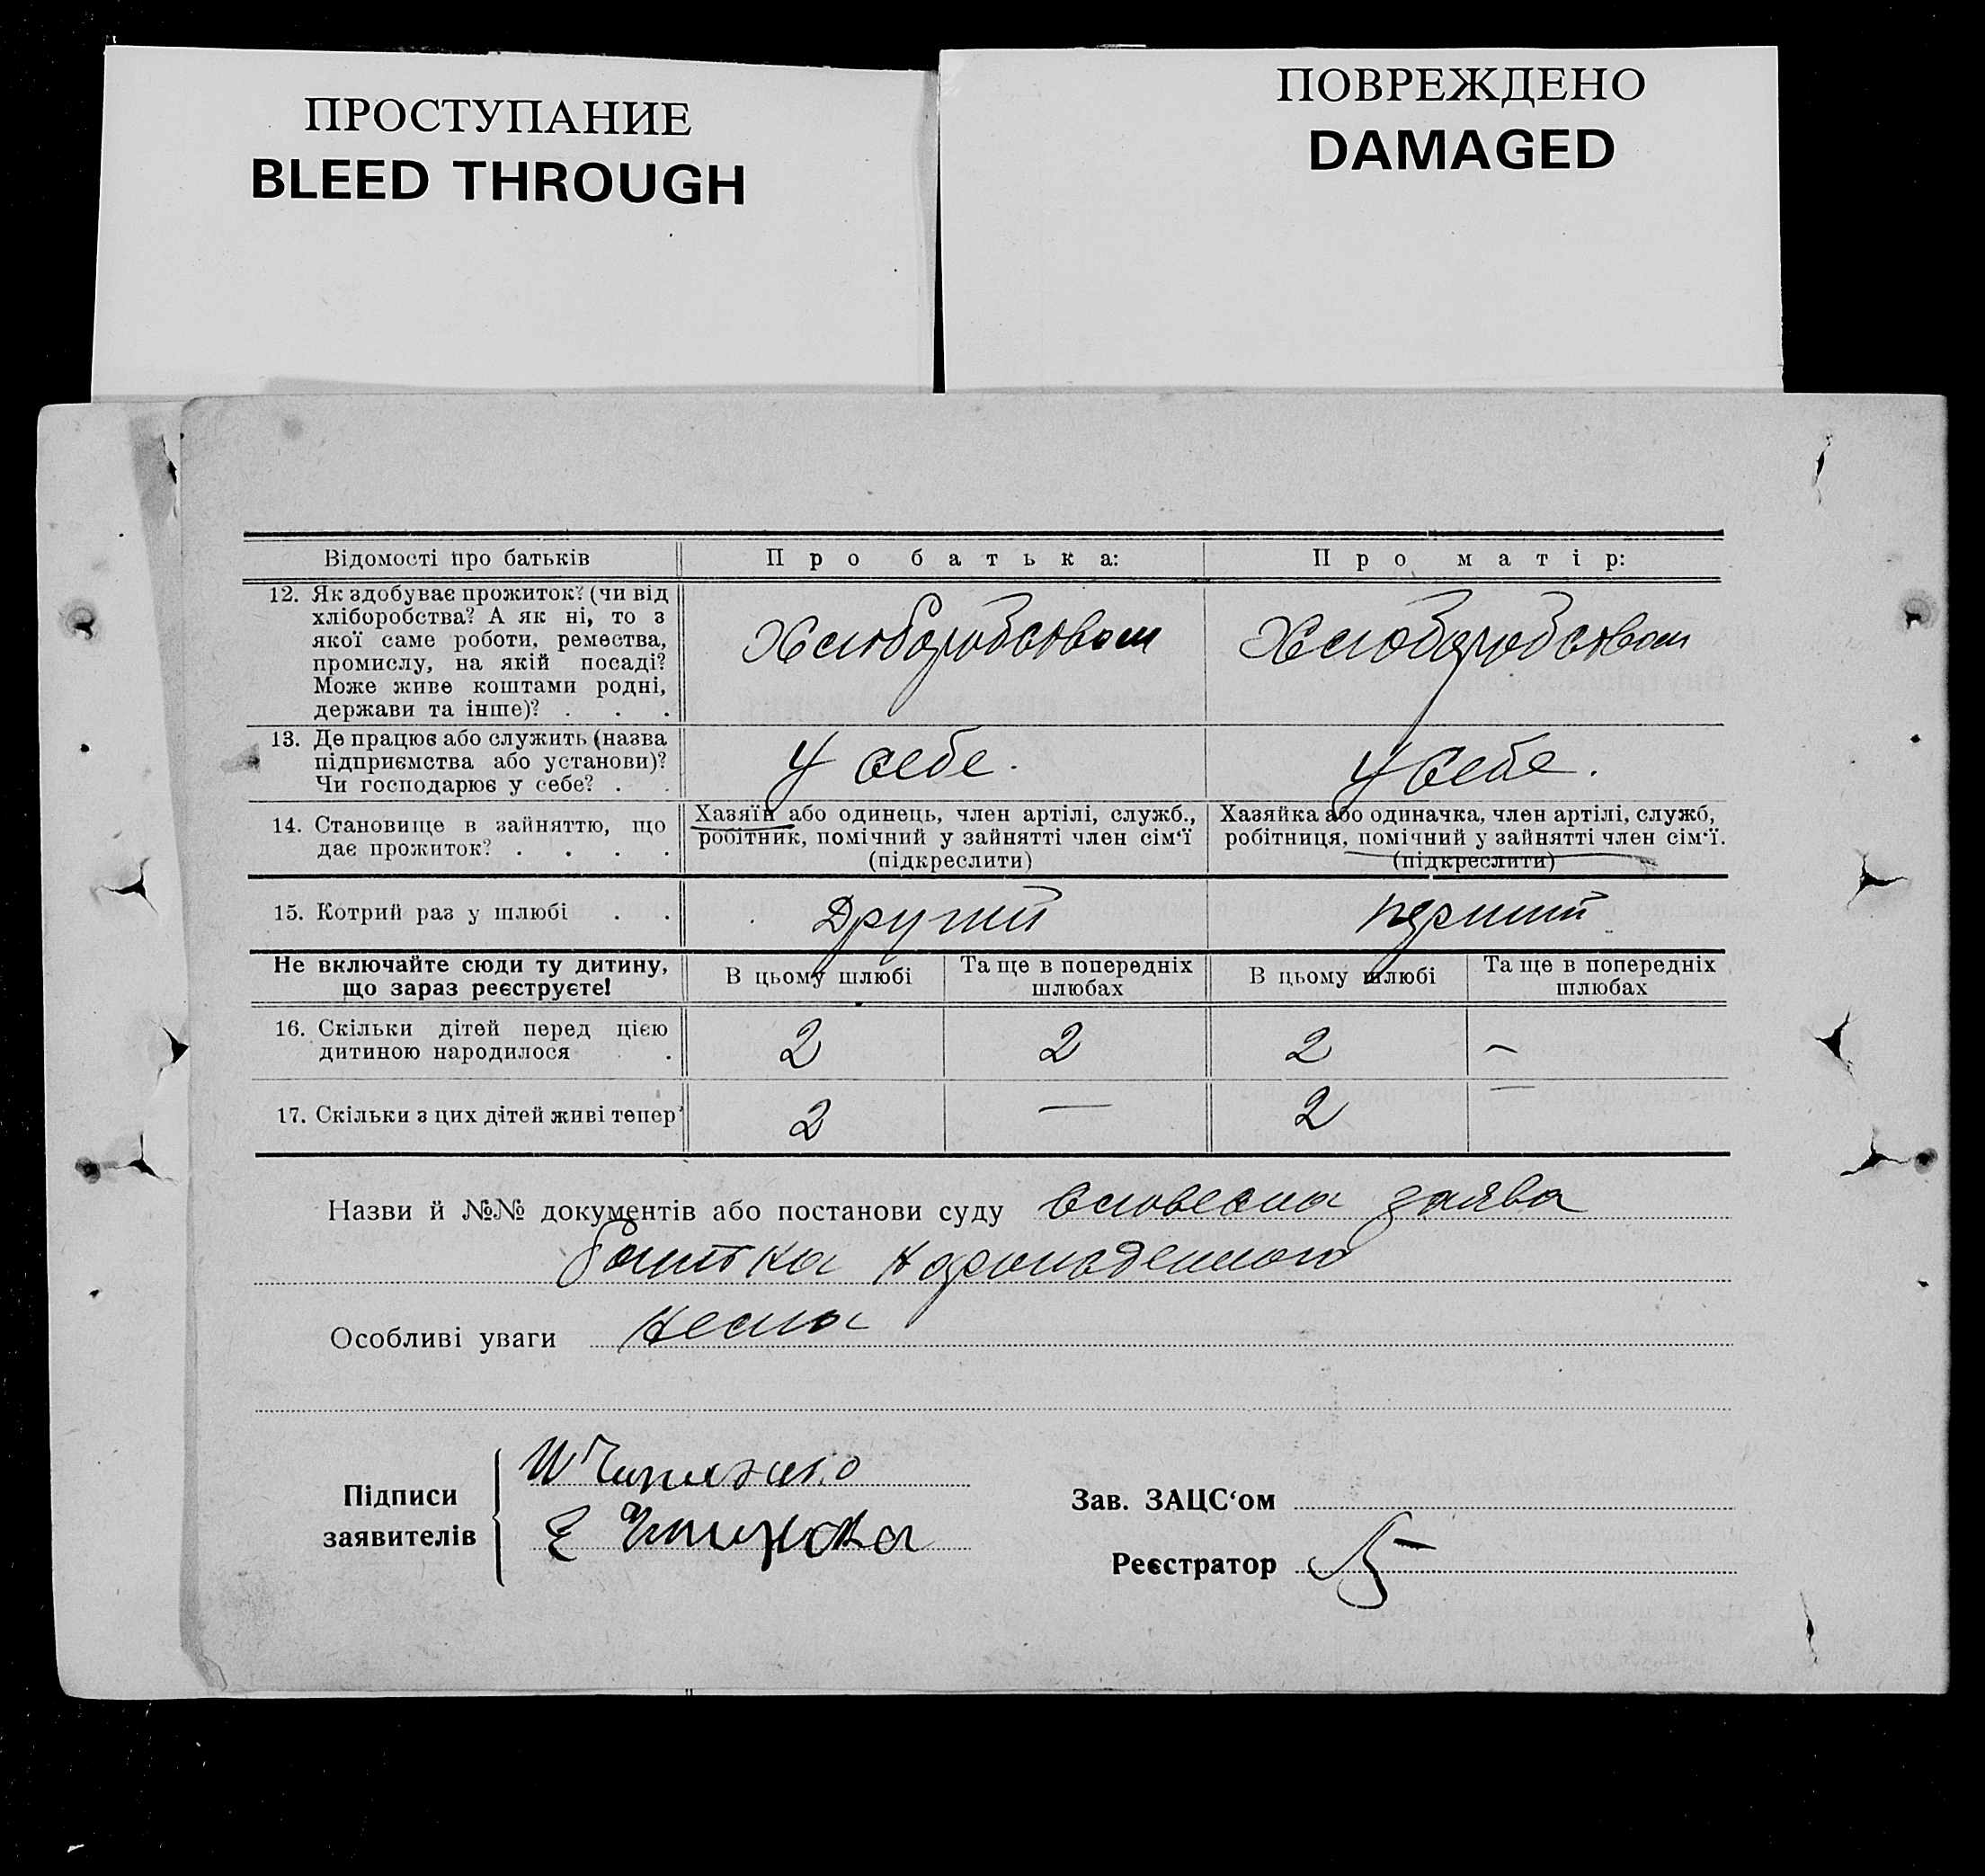 ПРОСТУПАНИЕ
BLEED THROUGH
ПОВРЕЖДЕНО
DAMAGED
Відомості про батьків
Про батька:
Про матір:
12. Як здобуває прожиток? (чи від
хліборобства? А як ні, то з
якої саме роботи, ремества,
промислу, на якій посаді?
Може живе коштами родні,
держави та інше)? . . .
Хлюборобством
Хлюборобством
13. Де працює або служить (назва
підприємства або установи)?
Чи господарює у себе? . .
У себе.
У себе.
14. Становище в зайняттю, що
дає прожиток? . . . .
Хазяїн або одинець, член артілі, служб.,
робітник, помічний у зайнятті член сім‘ї
(підкреслити)
Хазяйка або одиначка, член артілі, служб,
робітниця, помічний у зайнятті член сім‘ї.
(підкреслити)
15. Котрий раз у шлюбі . .
Другий
перший
Не включайте сюди ту дитину,
що зараз реєструєте!
В цьому шлюбі
Та ще в попередніх
шлюбах
В цьому шлюбі
Та ще в попередніх
шлюбах
16. Скільки дітей перед цією
дитиною народилося .
2
2
2
–
17. Скільки з цих дітей живі тепер?
2
—
2
—
Назви й №№ документів або постанови суду словесна заява
батька
Особливі уваги нема
Підписи
заявителів
Зав. ЗАЦС‘ом
Реєстратор